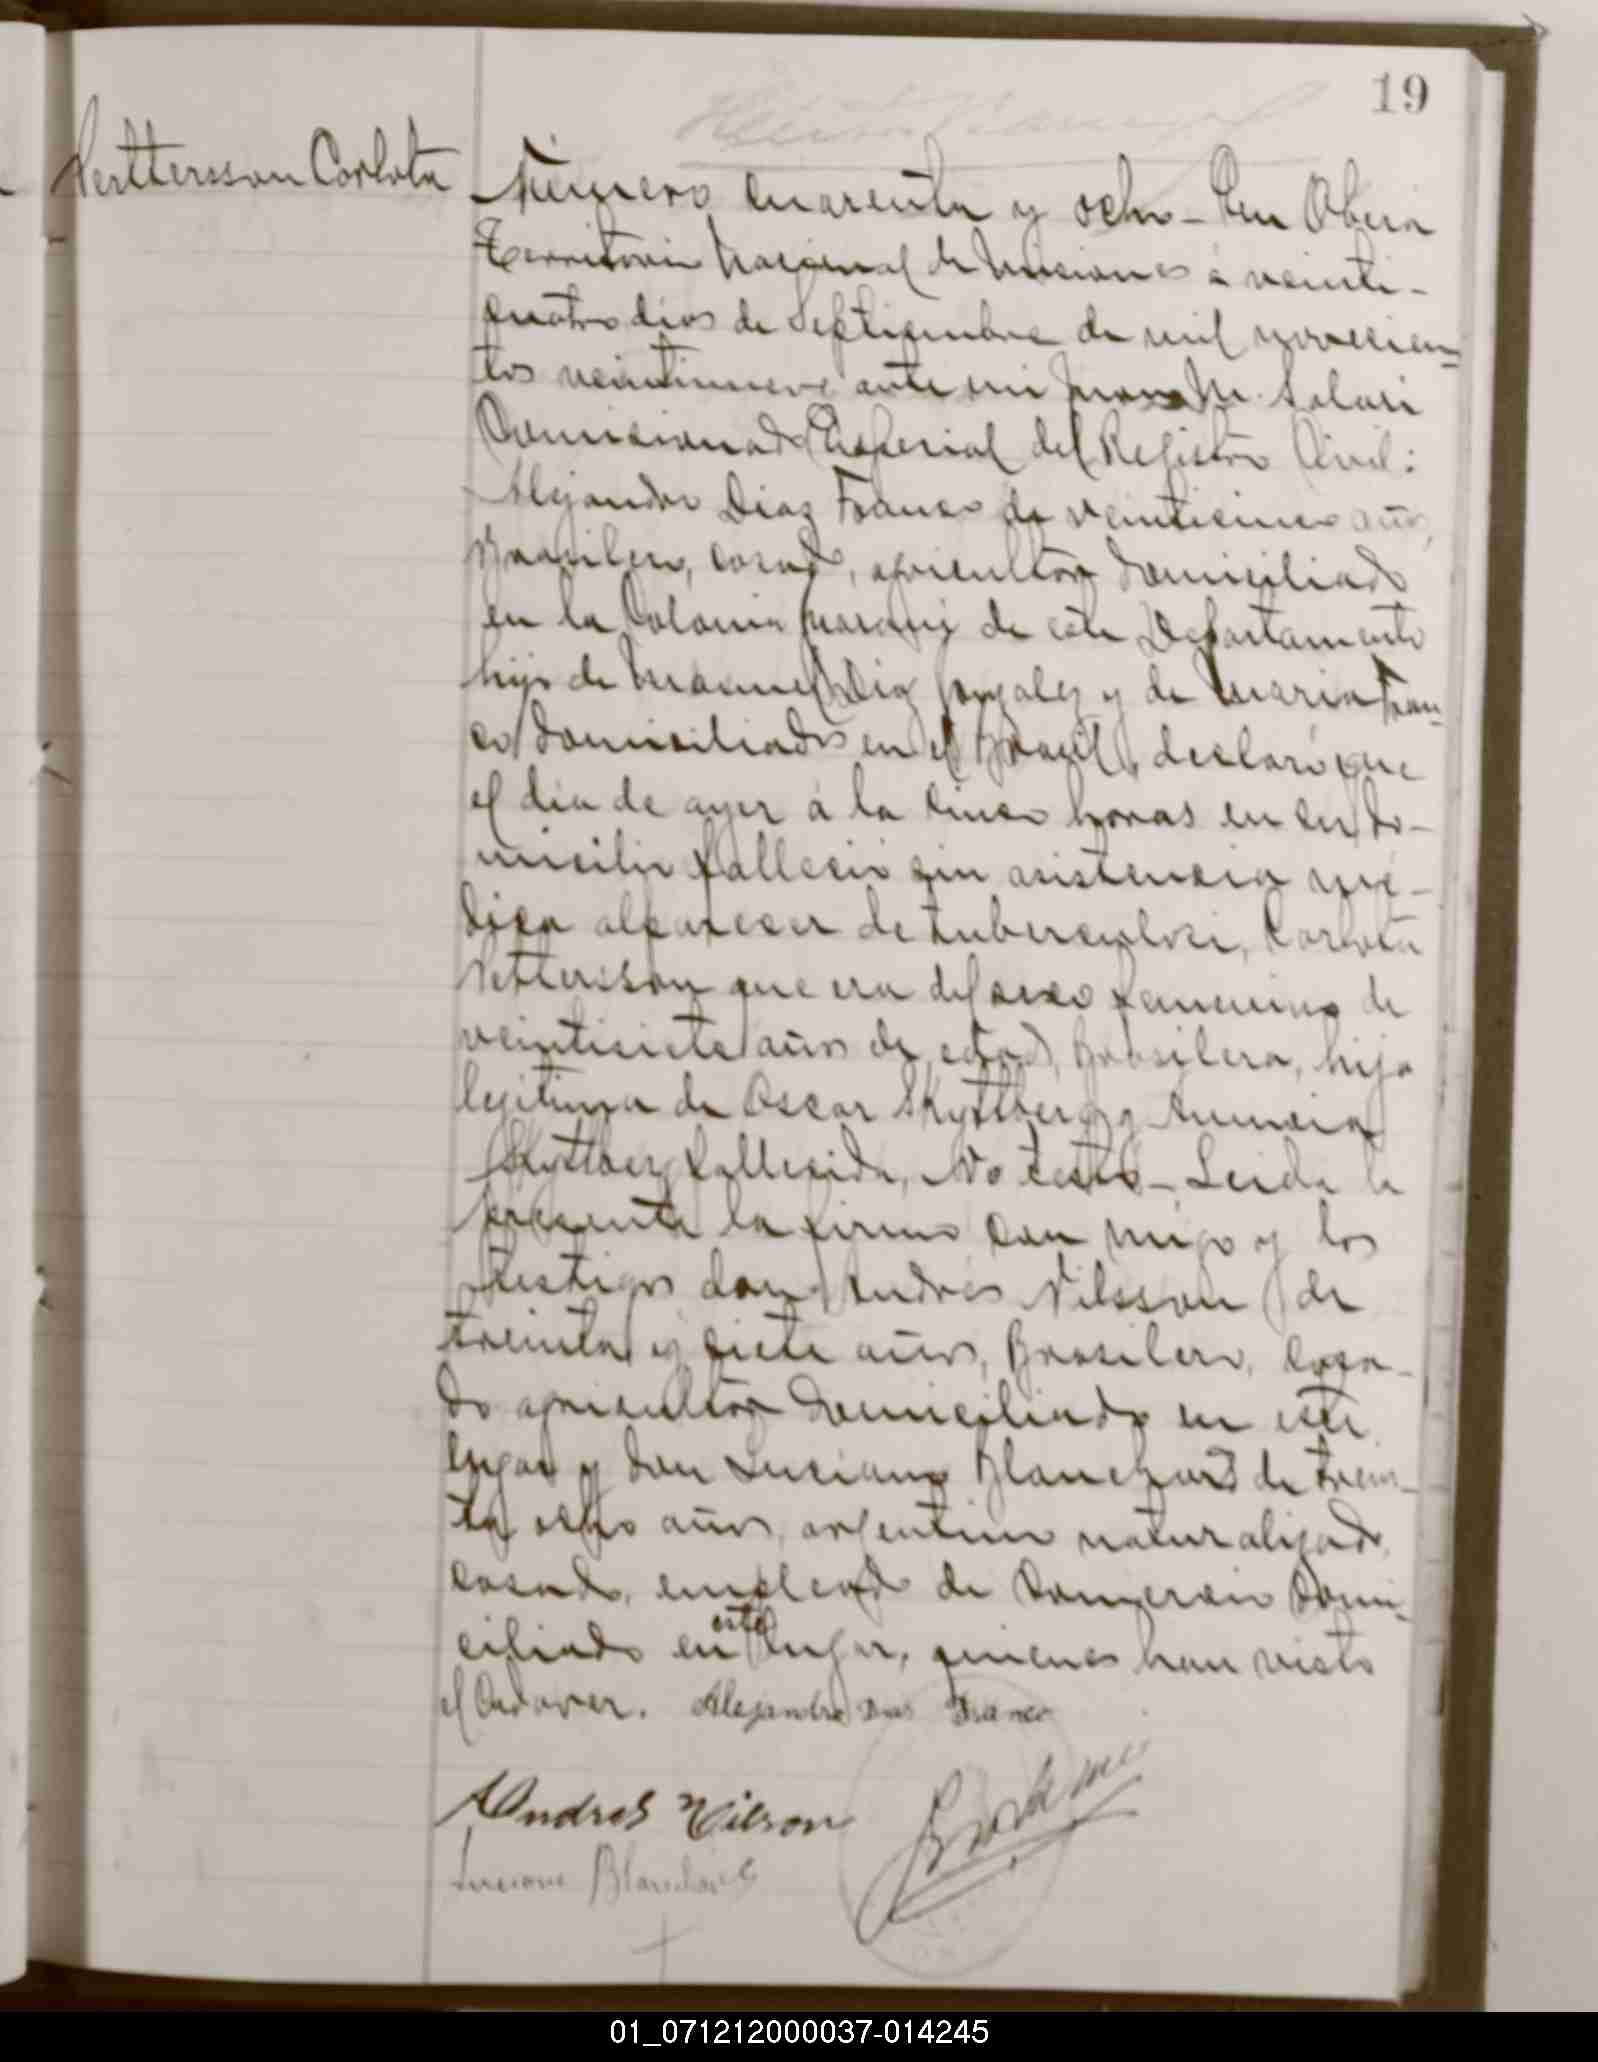 19
Perttersson Carlota
Número cuarenta y ocho - En Obera
Territorio Nacional de Misiones á veinti-
cuatro dias de Septiembre de mil novecien-
tos veintinueve ante mi Juan M. Solari
Comisionado Especial del Registro Civil:
Alejandro Diaz Franco de veinticinco años,
Brasilero, casado, agricultor domiciliado
en la Colonia Guarany de este Departamento
hijo de Manuel Diaz Gonzalez y de Maria Fran-
co domiciliados en el Brasil, declaró que
el dia de ayer á la cinco horas en su do-
micilio falleció sin asistencia mé-
dica al parecer de tuberculosi, Carlota
Pettersson que era del sexo femenino de
veintisiete años de edad, Brasilera, hija
legitima de Oscar Skyttberg y
Skyttberg fallecida, No testó - Leida la
presente la firmó con migo y los
testigos don Andrés Nilsson de
treinta y siete años, Brasilero, casa-
do agricultor domiciliado en este
lugar y don Luciano Blanchard de trein-
ta ocho años, argentino naturalizado,
casado, empleado de Comercio domi-
este
ciliado en lugar, quienes han visto
el Cadaver. Alejandro Dias Franco
Andres Nilson
Luciano Blanchard
01_071212000037-014245